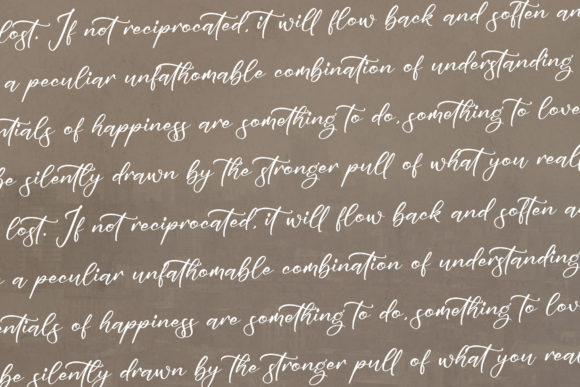 lost. If not reciprocated, it will flow back and soften an
a peculiar unfathomable combination of understanding
ntials of happiness are something to do, something to love
be silently drawn by the stronger pull of what you reall
lost. If not reciprocated, it will flow back and soften an
a peculiar unfathomable combination of understanding
entials of happiness are something to do, something to lov
be silently drawn by the stronger pull of what you real